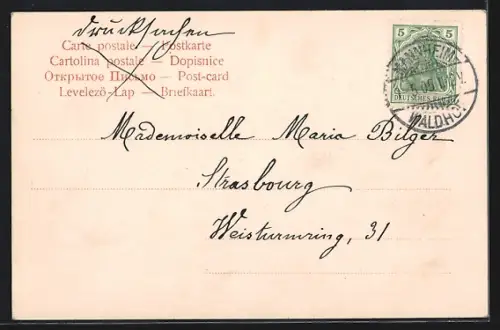 Drucksachen
Carte postale — Postkarte
Cartolina postale — Dopisnice
Открытое Письмо — Post-card
Levelező-Lap — Briefkaart.
5 5
DEUTSCHES REICH
MANNHEIM
WALDHOF
Mademoiselle Maria Bilger
Strasbourg
Weisturmring, 31